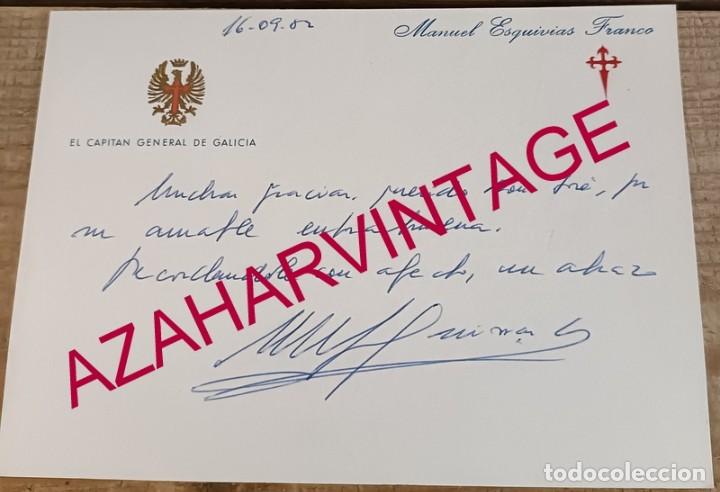 16-09-82
Manuel Esquivias Franco
EL CAPITAN GENERAL DE GALICIA
Muchas gracias, querido Don José, por
su amable enhorabuena.
Recordándole con afecto, un abrazo
AZAHARVINTAGE
todocoleccion